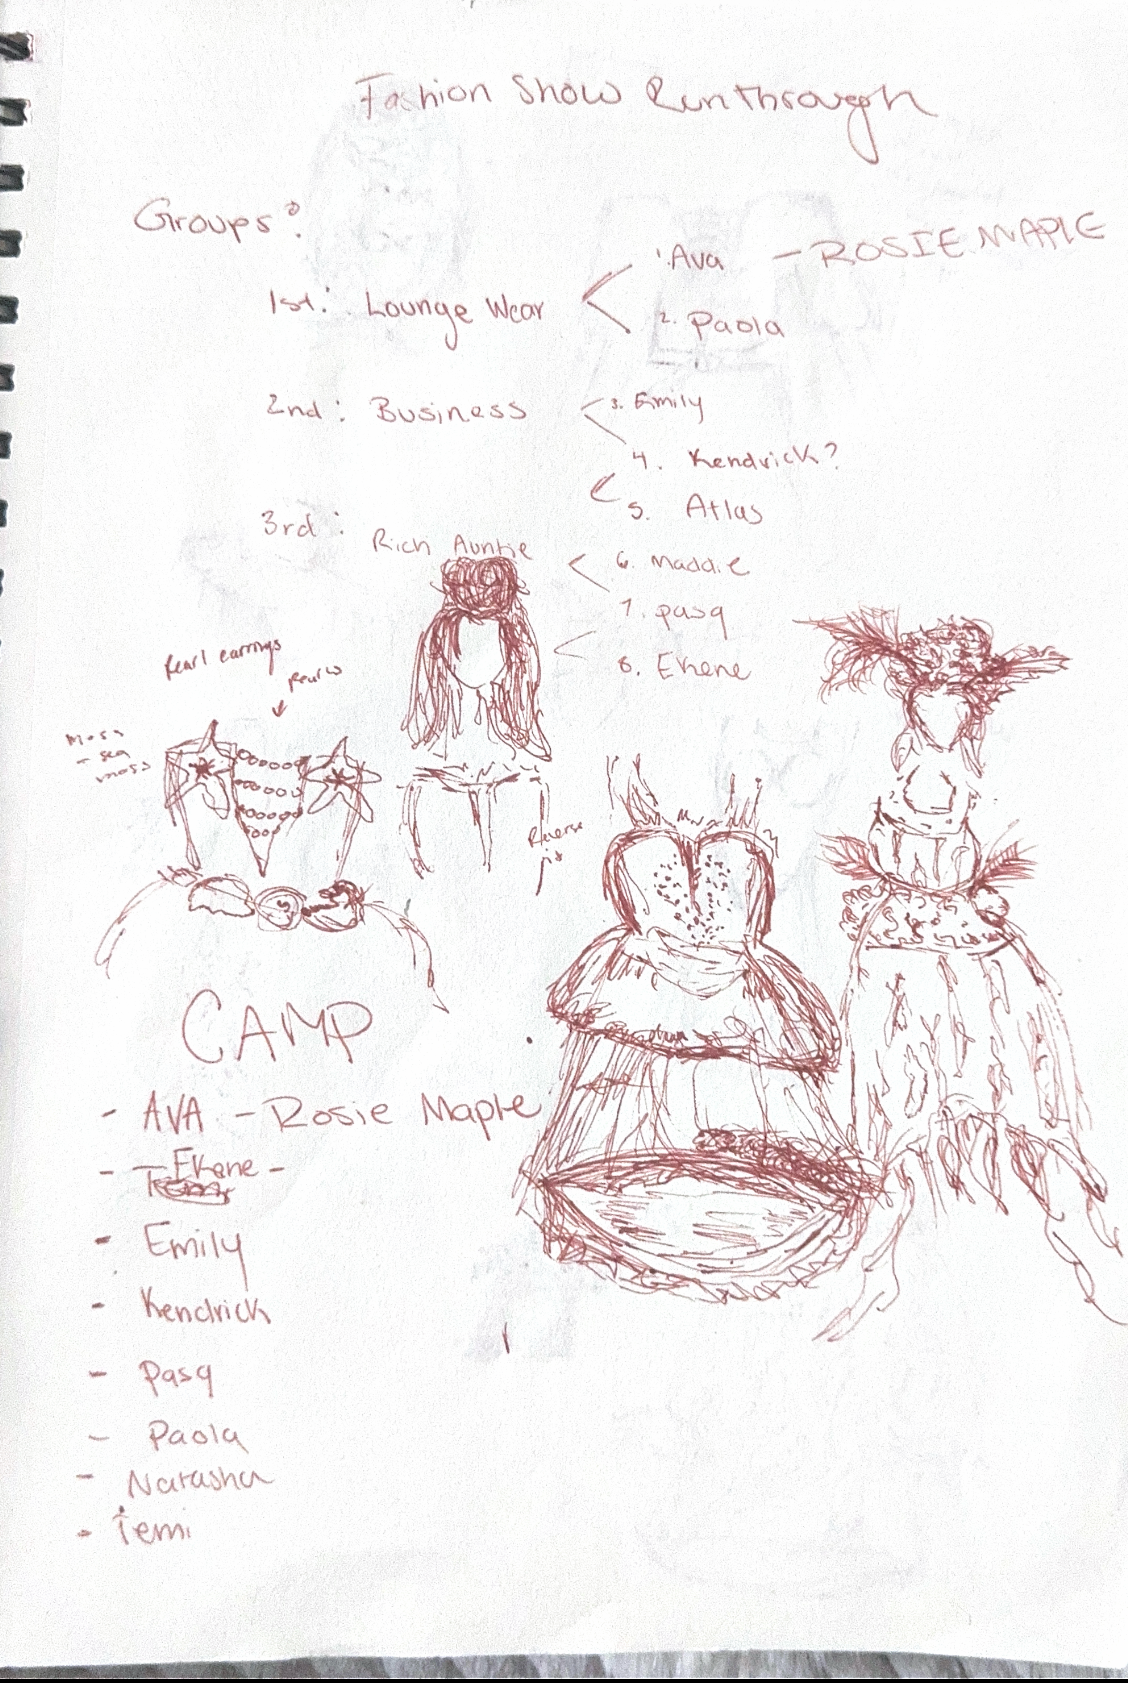 Fashion Show Runthrough
Groups:
1st: Lounge Wear
1. Ava - ROSIE MAPLE
2. Paola
2nd: Business
3. Emily
4. Kendrick?
5. Atlas
3rd: Rich Auntie
6. Maddie
7. Pasq
8. Ekene
Pearl earrings
Pearls
moss
- sea
moss
Reverse
CAMP
- AVA - Rosie Maple
- Ekene -
- Emily
- Kendrick
- Pasq
- Paola
- Natasha
- Temi